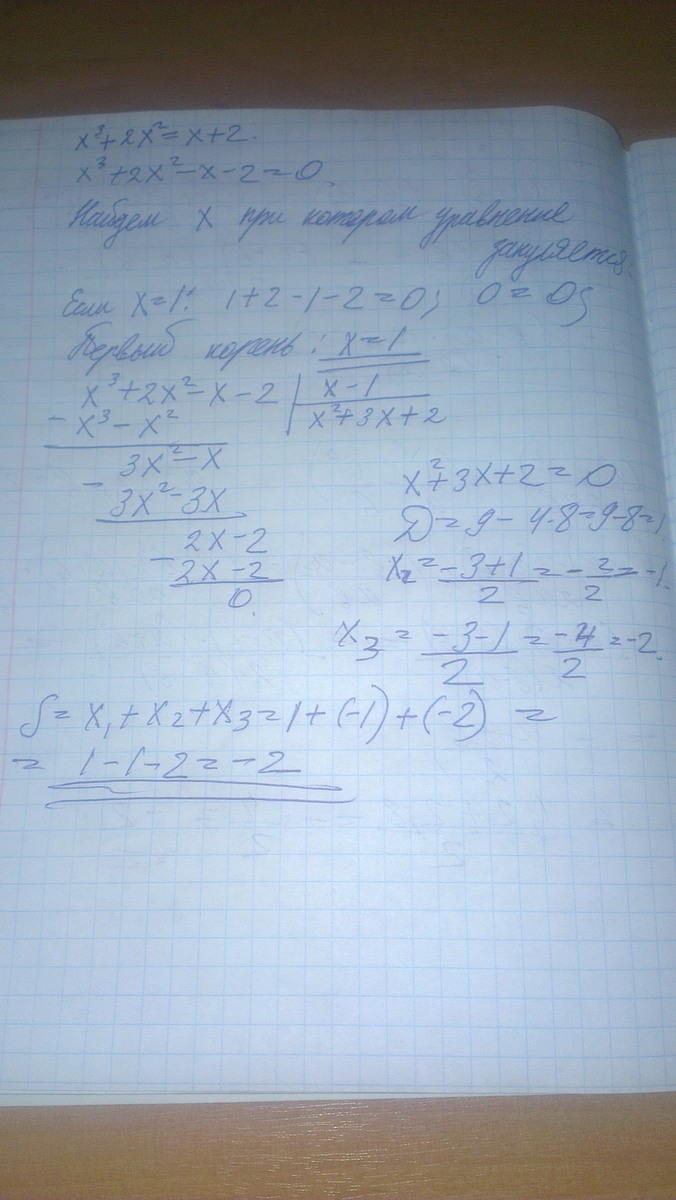 x³+2x²=x+2.
x³+2x²-x-2=0.
Найдем x при котором уравнение
зануляется.
Если x=1: 1+2-1-2=0; 0=0;
Первый корень: x=1
x³+2x²-x-2 | x-1
-x³-x² | x²+3x+2
3x²-x
- 3x²-3x
2x-2
- 2x-2
0.
x²+3x+2=0
D=9-4·8=9-8=1.
x₂=-3+1/2=-2/2=-1.
x₃=-3-1/2=-4/2=-2.
S=x₁+x₂+x₃=1+(-1)+(-2)=
=1-1-2=-2